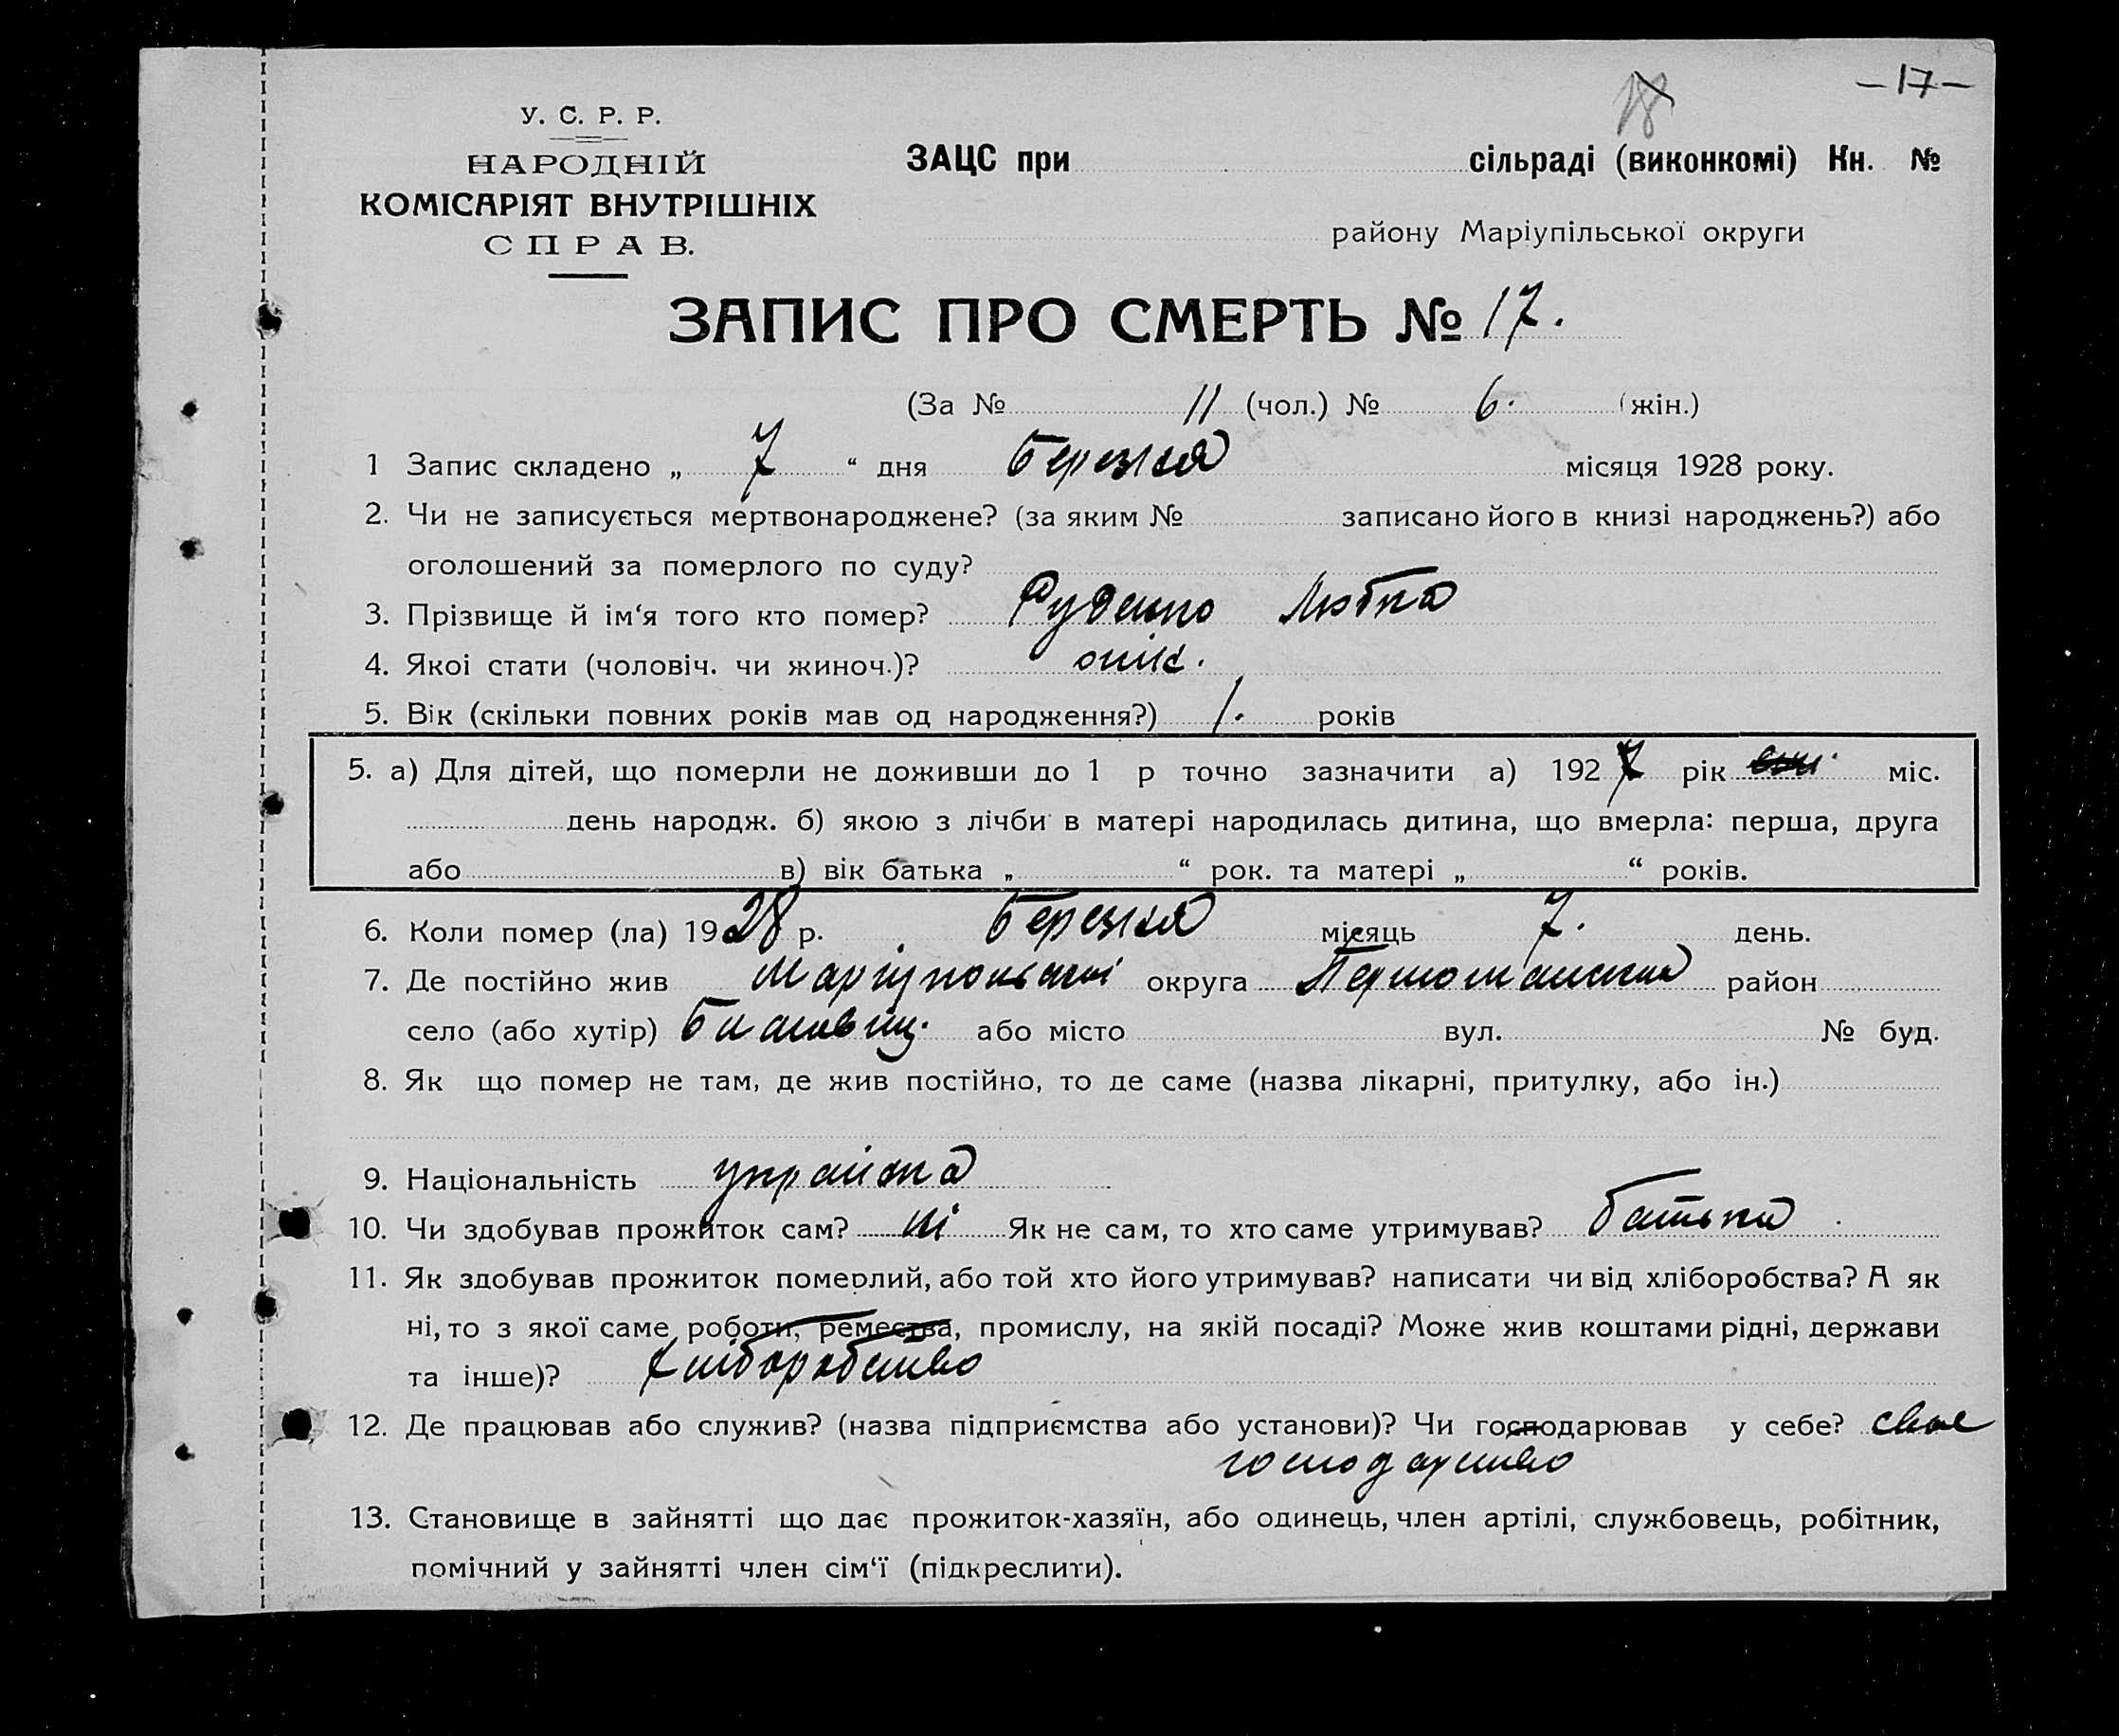 -17-
18
У. С. Р. Р.
НАРОДНІЙ
КОМІСАРІЯТ ВНУТРІШНІХ
СПРАВ.
ЗАЦС при сільраді (виконкомі) Кн. №
району Маріупільської округи
ЗАПИС ПРО СМЕРТЬ № 17.
(За № 11 (чол.) № 6. (жін.)
1 Запис складено „ 7 “ дня Березня місяця 1928 року.
2. Чи не записується мертвонароджене? (за яким № записано його в книзі народжень?) або
оголошений за померлого по суду?
3. Прізвище й ім‘я того кто помер? Руденко Любка
4. Якоі стати (чоловіч. чи жиноч.)?
5. Вік (скільки повних років мав од народження?) 1. років
5. а) Для дітей, що померли не доживши до 1 р точно зазначити а) 1927 рік міс.
день народж. б) якою з лічби в матері народилась дитина, що вмерла: перша, друга
або в) вік батька „ “ рок. та матері „ “ років.
6. Коли помер (ла) 1928 р. Березня місяць 7. день.
7. Де постійно жив округа район
село (або хутір) або місто вул. № буд.
8. Як що помер не там, де жив постійно, то де саме (назва лікарні, притулку, або ін.)
9. Національність
10. Чи здобував прожиток сам? ні Як не сам, то хто саме утримував? батько
11. Як здобував прожиток померлий, або той хто його утримував? написати чи від хліборобства? А як
ні, то з якої саме роботи, ремества, промислу, на якій посаді? Може жив коштами рідні, держави
та інше)? хліборобство
12. Де працював або служив? (назва підприємства або установи)? Чи господарював у себе? своє
господарство
13. Становище в зайнятті що дає прожиток-хазяїн, або одинець, член артілі, службовець, робітник,
помічний у зайнятті член сім‘ї (підкреслити).